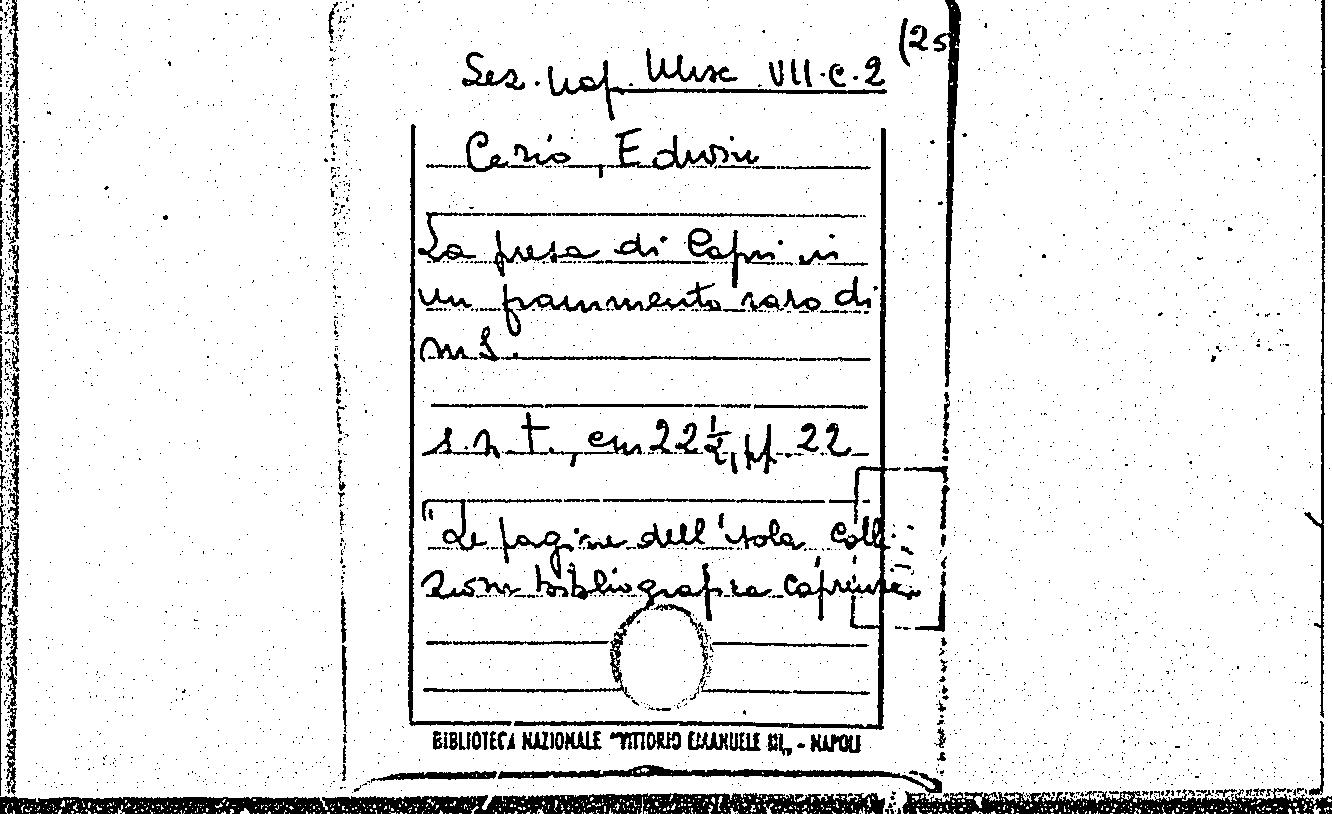 (25
Sez. Nap. Misc VII.C.2
Cerio, Edwin
La presa di Capri in
un frammento raro di
mS.
s.n.t., cm 22½, pp. 22
"Le pagine dell'isola Colle
zioni bibliografica caprense"
BIBLIOTECA NAZIONALE "VITTORIO EMANUELE III„ - NAPOLI